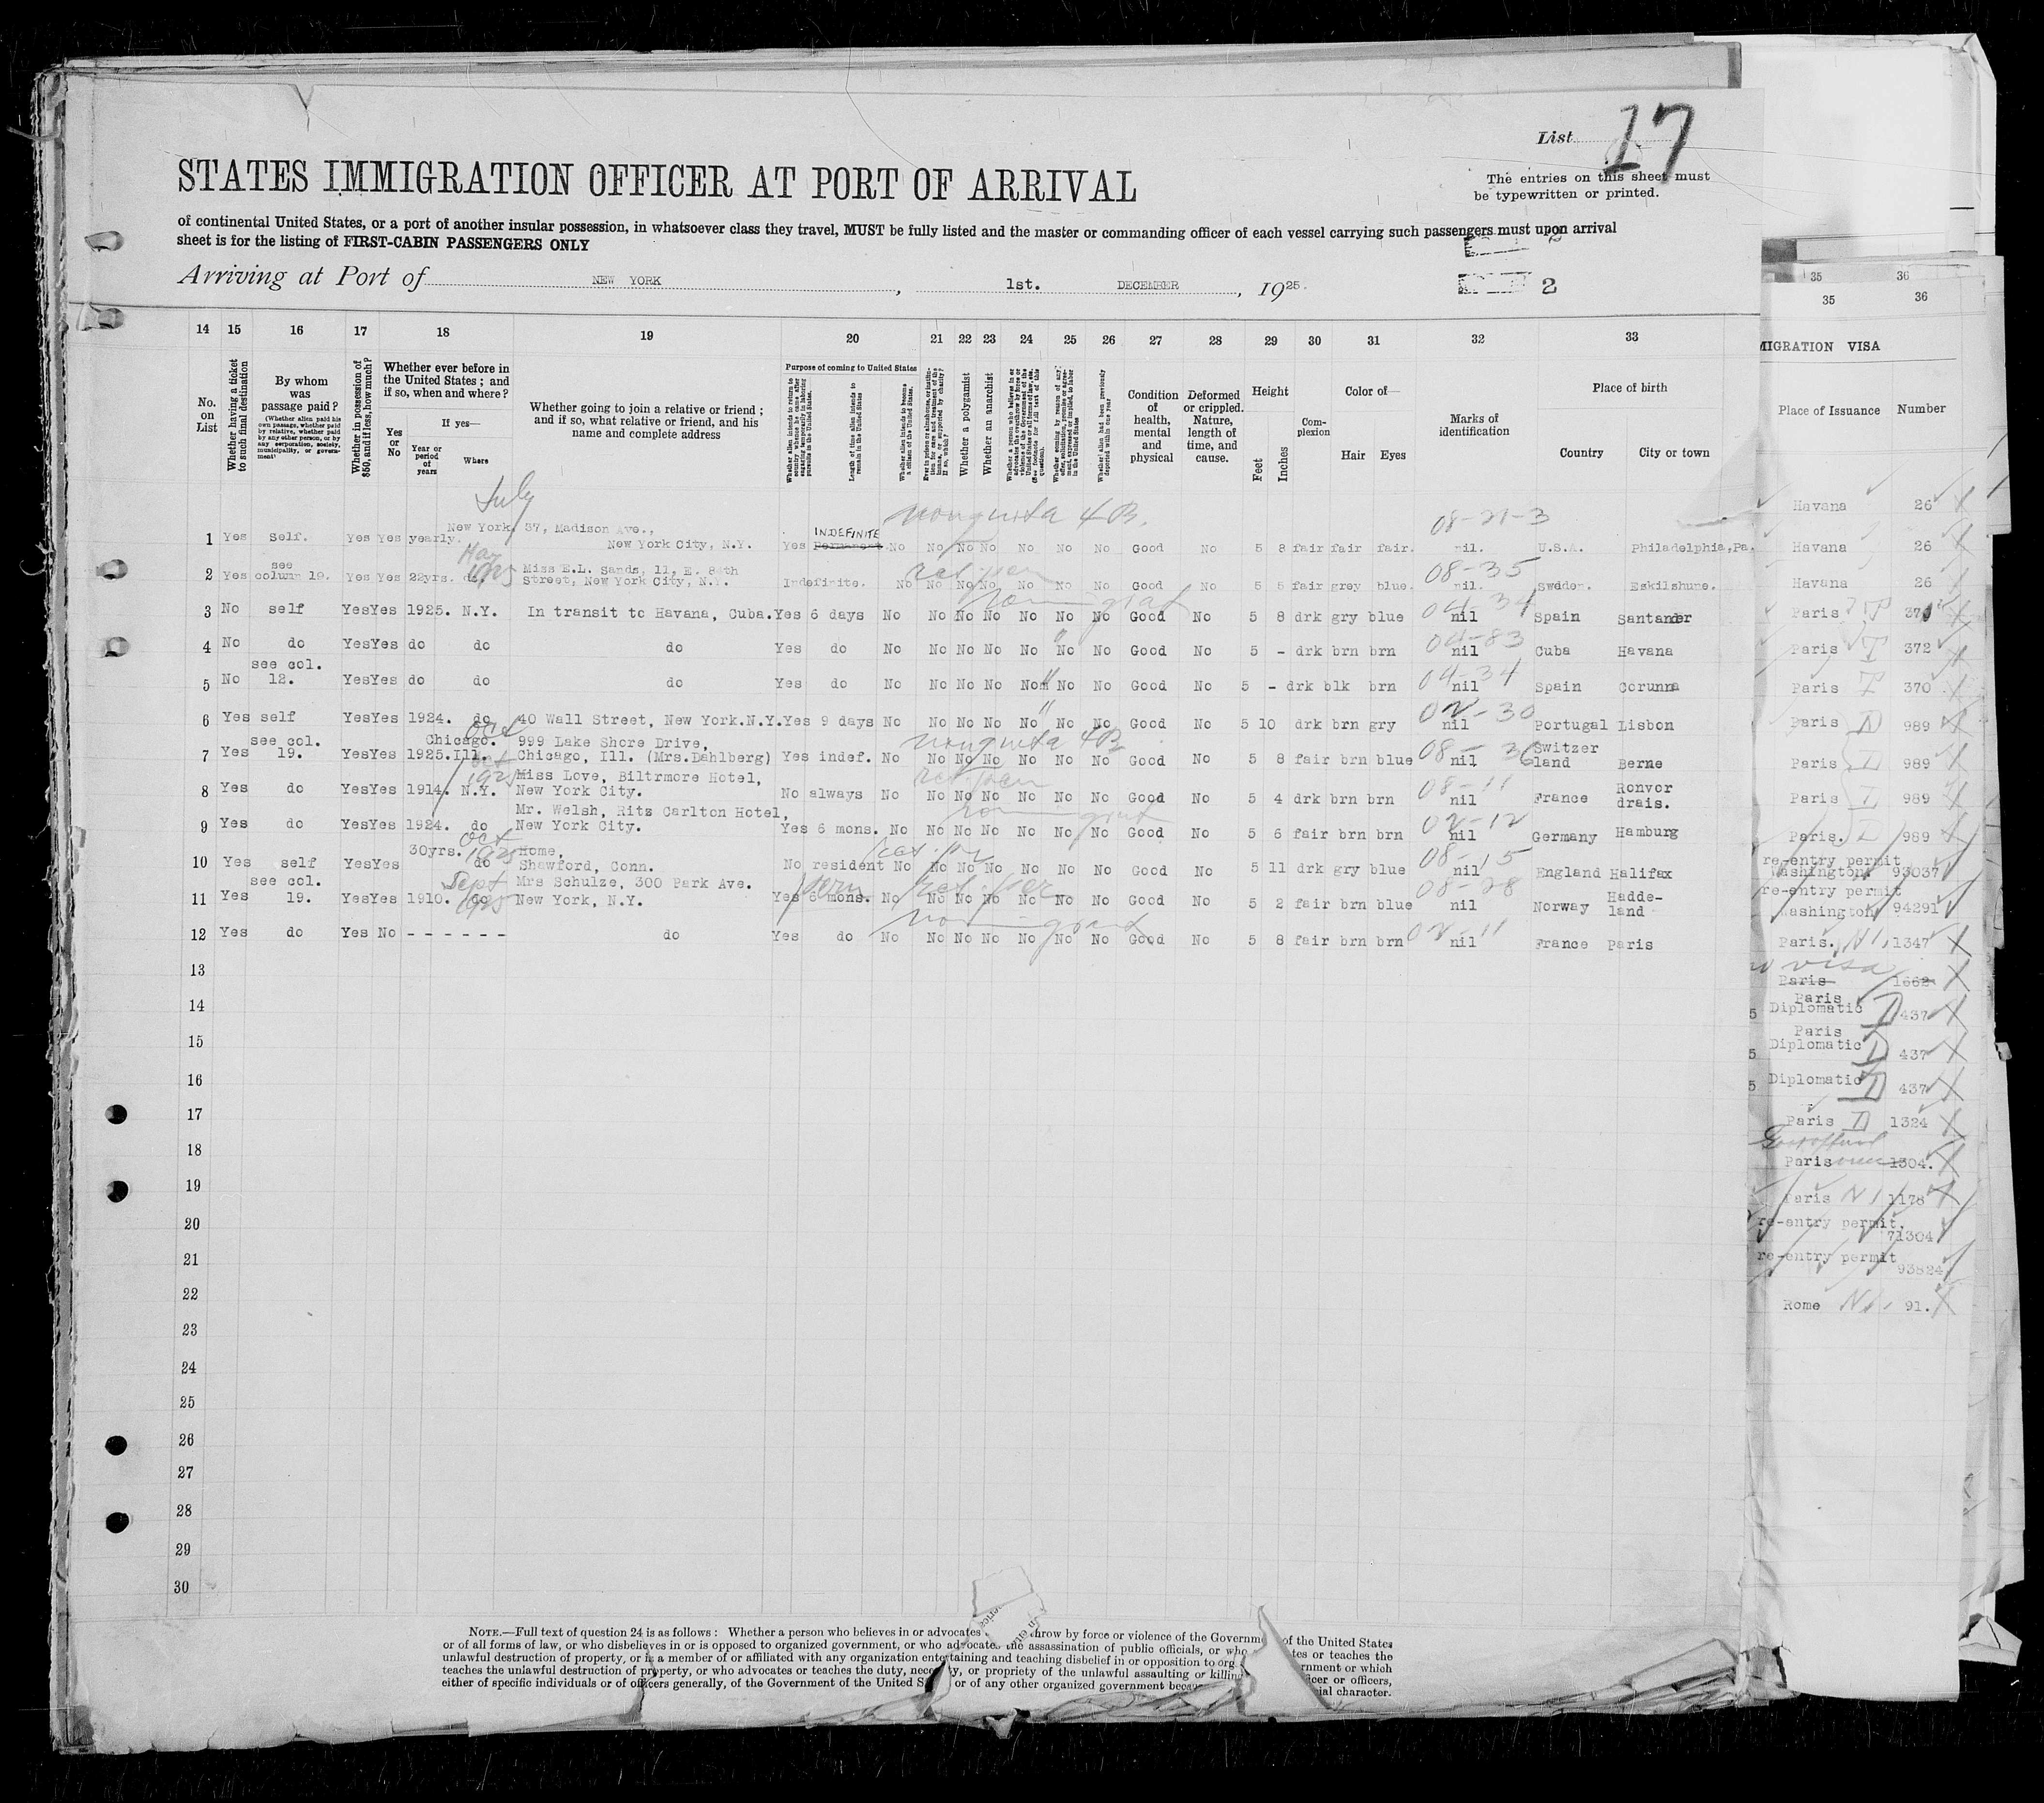 List 17
STATES IMMIGRATION OFFICER AT PORT OF ARRIVAL
The entries on this sheet must
be typewritten or printed.
of continental United States, or a port of another insular possession, in whatsoever class they travel, MUST be fully listed and the master or commanding officer of each vessel carrying such passengers must upon arrival
sheet is for the listing of FIRST-CABIN PASSENGERS ONLY
Arriving at Port of NEW YORK, 1st. DECEMBER, 1925.
2
14 15 16 17 18 19 20 21 22 23 24 25 26 27 28 29 30 31 32 33
35 36
35 36
No. on List
Whether having a ticket to such final destination
By whom was passage paid?
(Whether alien paid his own passage, whether paid by relative, whether paid by any other person, or by any corporation, society, municipality, or government)
Whether in possession of $50, and if less, how much?
Whether ever before in the United States; and if so, when and where?
Yes or No
If yes—
Year or period of years
Where
Whether going to join a relative or friend; and if so, what relative or friend, and his name and complete address
Purpose of coming to United States
Whether alien intends to return to country whence he came after engaging temporarily in laboring pursuits in the United States.
Length of time alien intends to remain in the United States
Whether alien intends to become a citizen of the United States.
Whether a polygamist
Whether an anarchist
Condition of health, mental and physical
Deformed or crippled. Nature, length of time, and cause.
Height
Feet
Inches
Complexion
Color of—
Hair
Eyes
Marks of identification
Place of birth
Country
City or town
MIGRATION VISA
Place of Issuance
Number
July
New York, 37, Madison Ave., INDEFINITE 08-21-3
1 Yes Self. Yes Yes yearly. New York City, N.Y. Yes Permanent No No No No No No No Good No 5 8 fair fair fair. nil. U.S.A. Philadelphia,Pa.
see Miss E.L. Sands, 11, E. 84th 08-35
2 Yes column 19. Yes Yes 22yrs. do, 1925 Street, New York City, N.Y. Indefinite. No No No No No No No Good No 5 5 fair grey blue. nil. Sweden. Eskilshune.
04-34
3 No self Yes Yes 1925. N.Y. In transit to Havana, Cuba. Yes 6 days No No No No No No No Good No 5 8 drk gry blue nil Spain Santander
04-83
4 No do Yes Yes do do do Yes do No No No No No No No Good No 5 - drk brn brn nil Cuba Havana
see col. 04-34
5 No 12. Yes Yes do do do Yes do No No No No No No No Good No 5 - drk blk brn nil Spain Corunna
02-30
6 Yes self Yes Yes 1924. do 40 Wall Street, New York.N.Y. Yes 9 days No No No No No No No Good No 5 10 drk brn gry nil Portugal Lisbon
see col. Chicago. Oct 999 Lake Shore Drive, 08-36 Switzer
7 Yes 19. Yes Yes 1925.Ill. Chicago, Ill. (Mrs.Dahlberg) Yes indef. No No No No No No No Good No 5 8 fair brn blue nil land Berne
Oct 1925 Miss Love, Biltrmore Hotel, 08-11 Ronvor
8 Yes do Yes Yes 1914. N.Y. New York City. No always No No No No No No No Good No 5 4 drk brn brn nil France drais.
Mr. Welsh, Ritz Carlton Hotel, 02-12
9 Yes do Yes Yes 1924. do New York City. Yes 6 mons. No No No No No No No Good No 5 6 fair brn brn nil Germany Hamburg
30yrs. Oct 1925 Home, 08-15
10 Yes self Yes Yes do Shawford, Conn. No resident No No No No No No No Good No 5 11 drk gry blue nil England Halifax
see col. Sept Mrs Schulze, 300 Park Ave. 08-28 Hadde-
11 Yes 19. Yes Yes 1910. do 1925 New York, N.Y. Yes 6 mons. No No No No No No No Good No 5 2 fair brn blue nil Norway land
02-11
12 Yes do Yes No - - - - - - do Yes do No No No No No No No Good No 5 8 fair brn brn nil France Paris
13
14
15
16
17
18
19
20
21
22
23
24
25
26
27
28
29
30
Havana 26
Havana 26
Havana 26
Paris 371
Paris T 372
Paris T 370
Paris 989
Paris 989
Paris 989
Paris. 989
re-entry permit
Washington 93037
re-entry permit
Washington 94291
Paris. 1347
visa
Paris 1662
Paris
Diplomatic 437
Paris
Diplomatic 437
Diplomatic 437
Paris 1324
Paris 1304.
Paris 1178
re-entry permit.
71304
re-entry permit
93824
Rome 91.
NOTE.—Full text of question 24 is as follows: Whether a person who believes in or advocates throw by force or violence of the Governme of the United States
or of all forms of law, or who disbelieves in or is opposed to organized government, or who advocates the assassination of public officials, or who tes or teaches the
unlawful destruction of property, or is a member of or affiliated with any organization entertaining and teaching disbelief in or opposition to org rnment or which
teaches the unlawful destruction of property, or who advocates or teaches the duty, nece ty, or propriety of the unlawful assaulting or killing cer or officers,
either of specific individuals or of officers generally, of the Government of the United S or of any other organized government becau ial character.